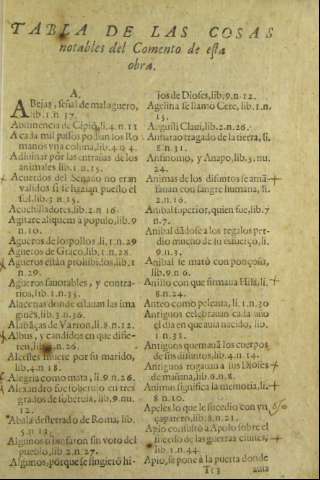 TABLA DE LAS COSAS
notables del Comento de esta
obra.
A.
ABejas, señal de mal aguero,
lib.1.n.37.
Abstinencia de Cipiõ, li.4.n.13
A cada mil passos ponian los Ro
manos vna coluna, lib.4.n.4.
Adiuinar por las entrañas de los
animales lib.1.n.15.
Acuerdos del Senado no eran
validos si se hazian puesto el
sol. lib.3.n.15.
Acochilladores, lib.2.n.16.
Agitare aliquem a populo, lib.9
n.10.
Agueros de los pollos, li.1.n.29
Agueros de Graco, lib.1.n.28.
Agueros están prohibidos, lib.1
n.29.
Agueros fauorables, y contra-
rios, lib.1.n.35.
Alacenas donde estauan las ima
gines, lib.3.n.36.
Alabãças de Varron, li.8.n.12.
Albus, y candidos en que difie-
ren, lib. .n.26.
Alcestes muere por su marido,
lib.4.n.18.
Alegria como mata, li.9.n.26.
Alexandro fue soberuio en tres
grados de soberuia, lib.9.nu.
12.
Abala desterrado de Roma, lib.
5.n.13.
Algunos triunfaron sin voto del
pueblo, lib.2.n.27.
Algunos, porque se fingierõ hi-
jos de Dioses, lib.9.n.12.
Agelina se llamo Cere, lib.1.n.
15.
Angusti Claui, lib.2.n.26.
Anfiarao tragado de la tierra, li.
8.n.31.
Anfinomo, y Anapo, lib.5.nu.
24.
Animas de los difuntos se amã-
sauan con sangre humana, li.
2.n.16.
Anibal superior, quien fue, lib.7
n.7.
Anibal dãdose a los regalos per-
dio mucho de su esfuerço, li.
9.n.3.
Anibal se mató con ponçoña,
lib.9.n.6.
Anillo con que firmaua Hisl, li.
8.n.24.
Anteo como peleaua, li.1.n.30
Antiguos celebrauan cada año
el dia en que auia nacido, lib.
1.n.31.
Antiguos quemauã los cuerpos
de sus difuntos, lib.4.n.14.
Antiguos rogauan a sus Dioses
de mañana, lib.6.n.8.
Animas significa la memoria, li.
8.n.10.
Apeles lo que le sucedio con vn
çapatero, lib.8.n.21.
Apio consulto a Apolo sobre el
sucesso de las guerras ciuiles,
lib.1.n.44.
Apio, se pone a la puerta donde
Tt3 auia